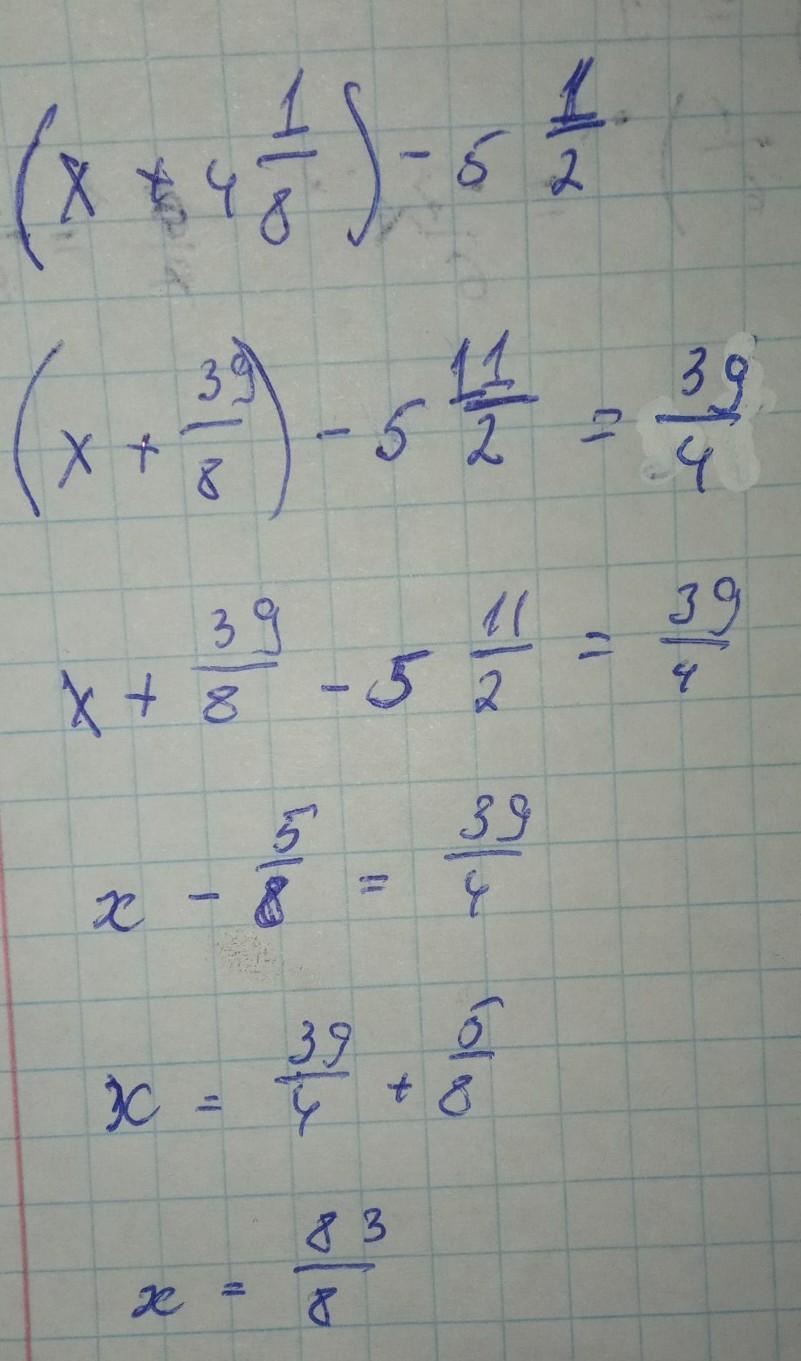 (x + 4 1/8) - 5 1/2
(x + 39/8) - 5 11/2 = 39/4
x + 39/8 - 5 11/2 = 39/4
x - 5/8 = 39/4
x = 39/4 + 5/8
x = 83/8